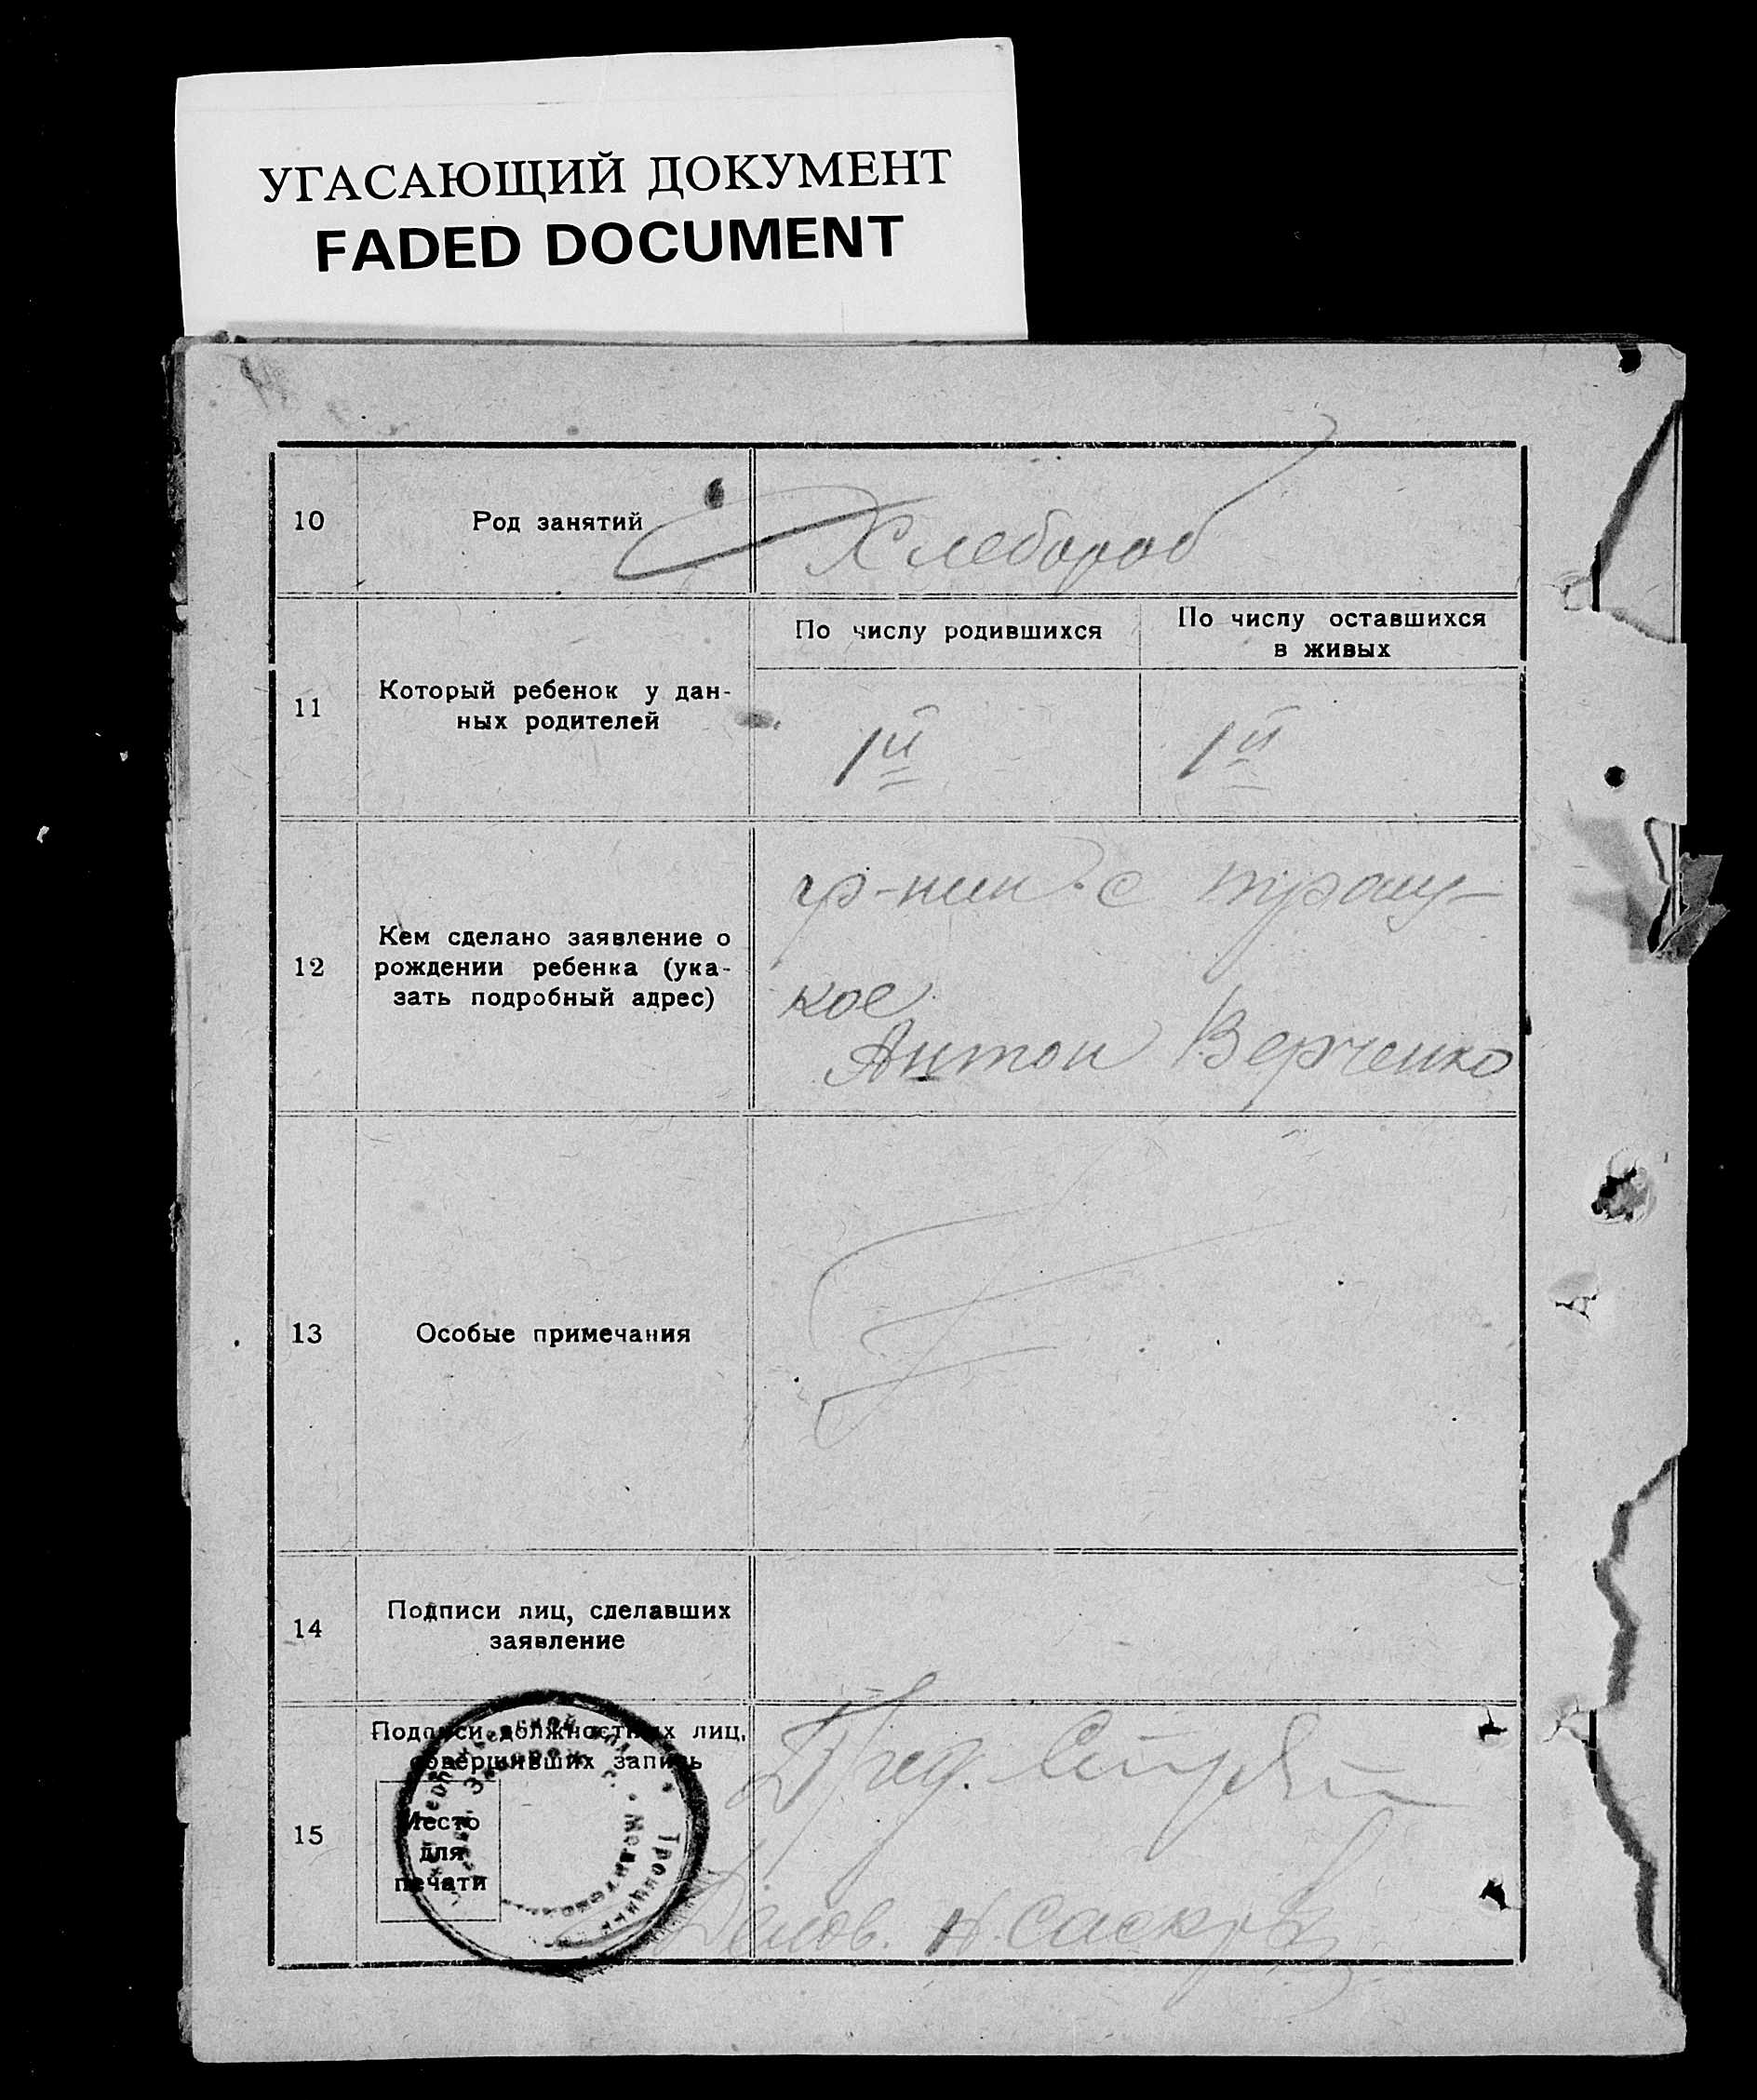 УГАСАЮЩИЙ ДОКУМЕНТ
FADED DOCUMENT
10
Род занятий
Хлебороб
11
Который ребенок у дан-
ных родителей
По числу родившихся
1й
По числу оставшихся
в живых
1й
12
Кем сделано заявление о
рождении ребенка (ука-
зать подробный адрес)
гр-нин с
кое
Антон Верченко
13
Особые примечания
14
Подписи лиц, сделавших
заявление
15
Подписи должностных лиц,
совершивших запись
Место
для
печати
Пред.
Делов. Н.